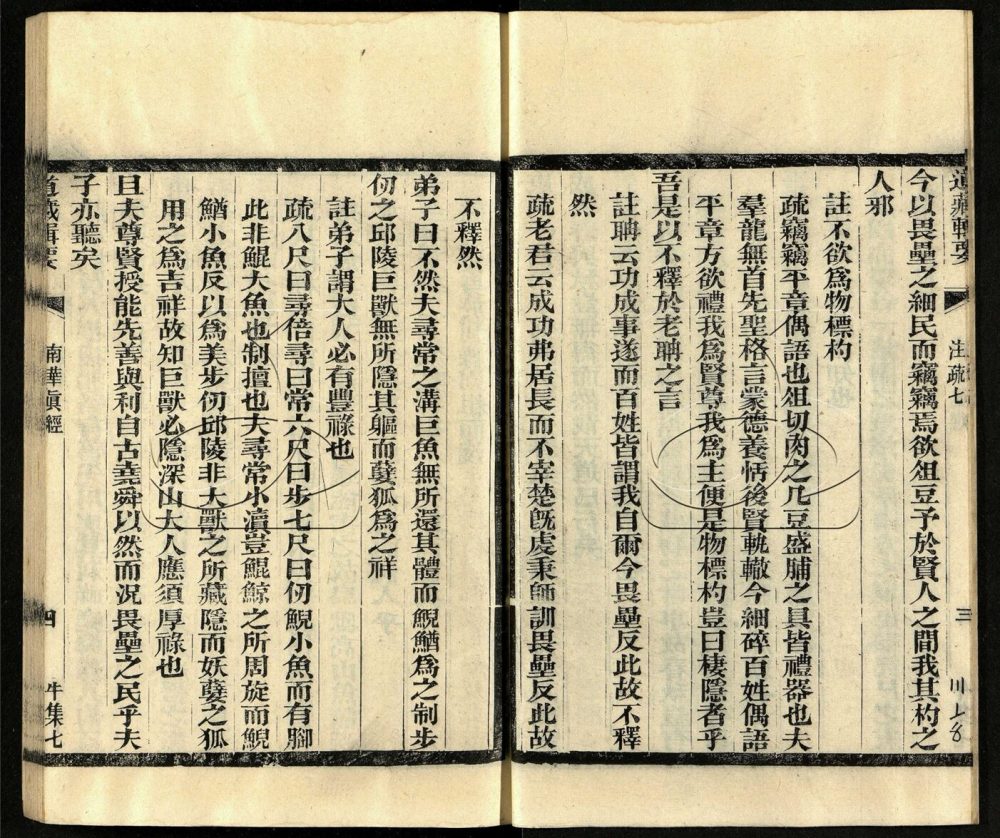 道藏輯要
注疏七
三
今以畏壘之細民而竊竊焉欲俎豆予於賢人之間我其杓之
人邪
註不欲爲物標杓
疏竊竊平章偶語也俎切肉之几豆盛脯之具皆禮器也夫
羣龍無首先聖格言蒙德養恬後賢軌轍今細碎百姓偶語
平章方欲禮我爲賢尊我爲主便是物標杓豈曰棲隱者乎
吾是以不釋於老聃之言
註聃云功成事遂而百姓皆謂我自爾今畏壘反此故不釋
然
疏老君云成功弗居長而不宰楚旣虔秉師訓畏壘反此故
不釋然
弟子曰不然夫尋常之溝巨魚無所還其體而鯢鰌爲之制步
仞之邱陵巨獸無所隱其軀而㜸狐爲之祥
註弟子謂大人必有豐祿也
疏八尺曰尋倍尋曰常六尺曰步七尺曰仞鯢小魚而有腳
此非鯤大魚也制擅也夫尋常小瀆豈鯤鯨之所周旋而鯢
鰌小魚反以爲美步仞邱陵非大獸之所藏隱而妖㜸之狐
用之爲吉祥故知巨獸必隱深山大人應須厚祿也
且夫尊賢授能先善與利自古堯舜以然而況畏壘之民乎夫
子亦聽矣
道藏輯要
南華眞經
四
牛集七